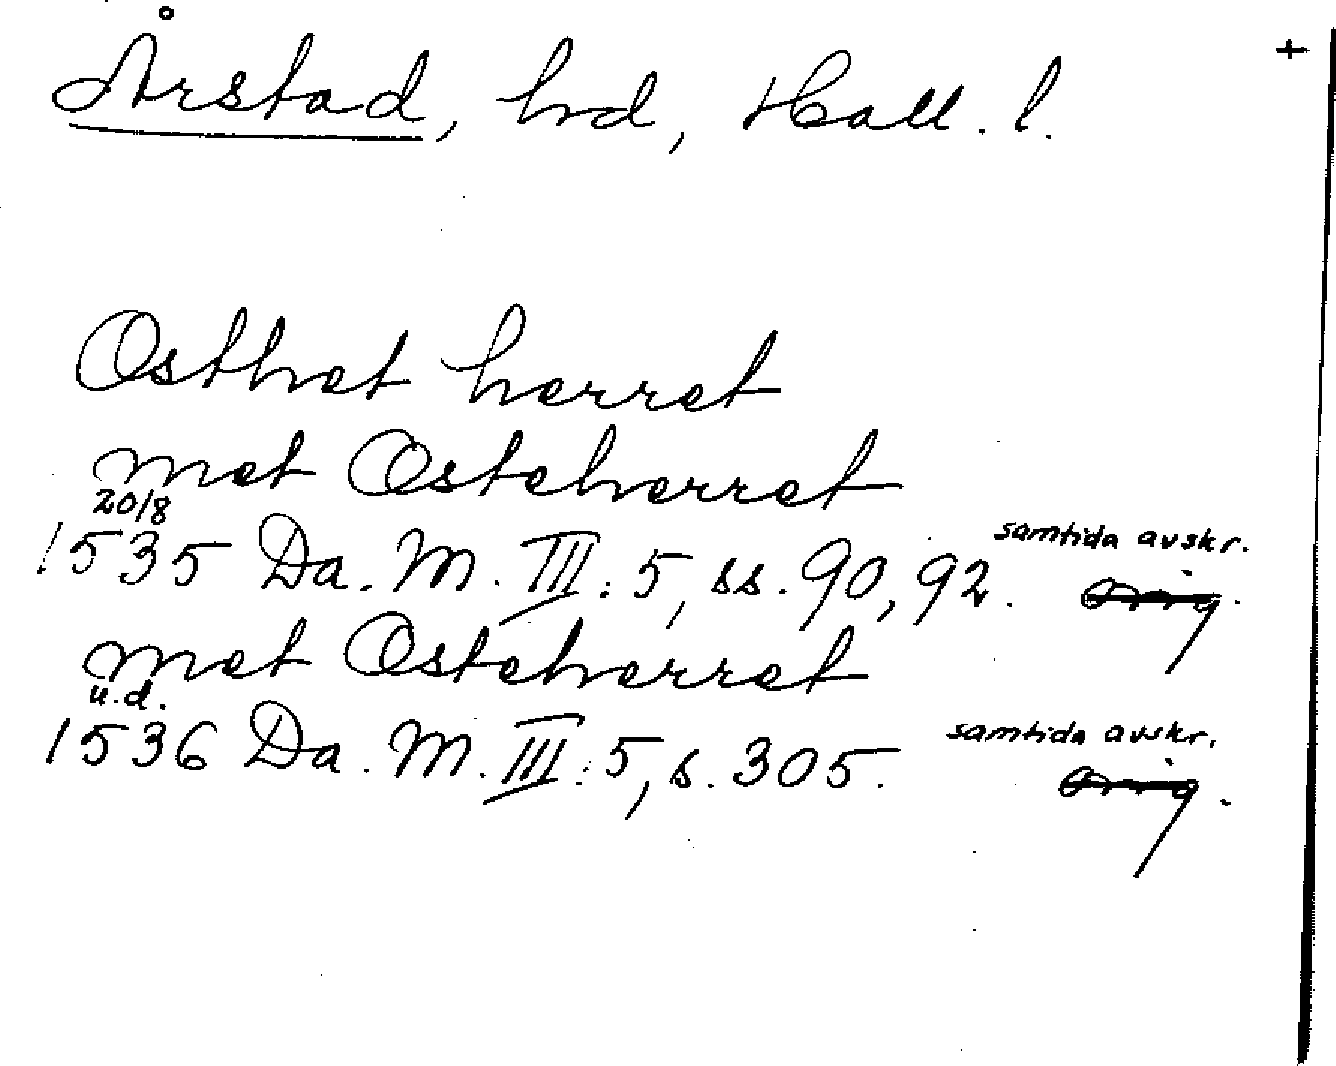 +
Årstad, hd, Hall. l.
Osthet herret
met Osteherret
20/8
1535 Da. M. III: 5, ss. 90, 92. samtida avskr.
orig.
met Osteherret
u.d.
1536 Da. M. III: 5, s. 305. samtida avskr.
orig.